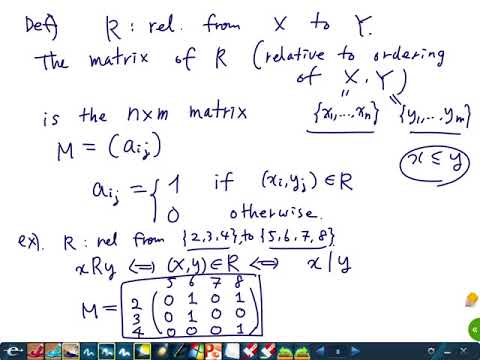 Def) R : rel. from X to Y.
The matrix of R (relative to ordering
of X, Y)
{x₁,...xₙ} {y₁,...yₘ}
is the n×m matrix
M = (aᵢⱼ)
x ≤ y
aᵢⱼ = { 1 if (xᵢ,yⱼ) ∈ R
0 otherwise.
ex). R : rel from {2,3,4}, to {5,6,7,8}
xRy ⟺ (x,y)∈R ⟺ x | y
5 6 7 8
M = 2 ( 0 1 0 1
3 0 1 0 0
4 0 0 0 1 )